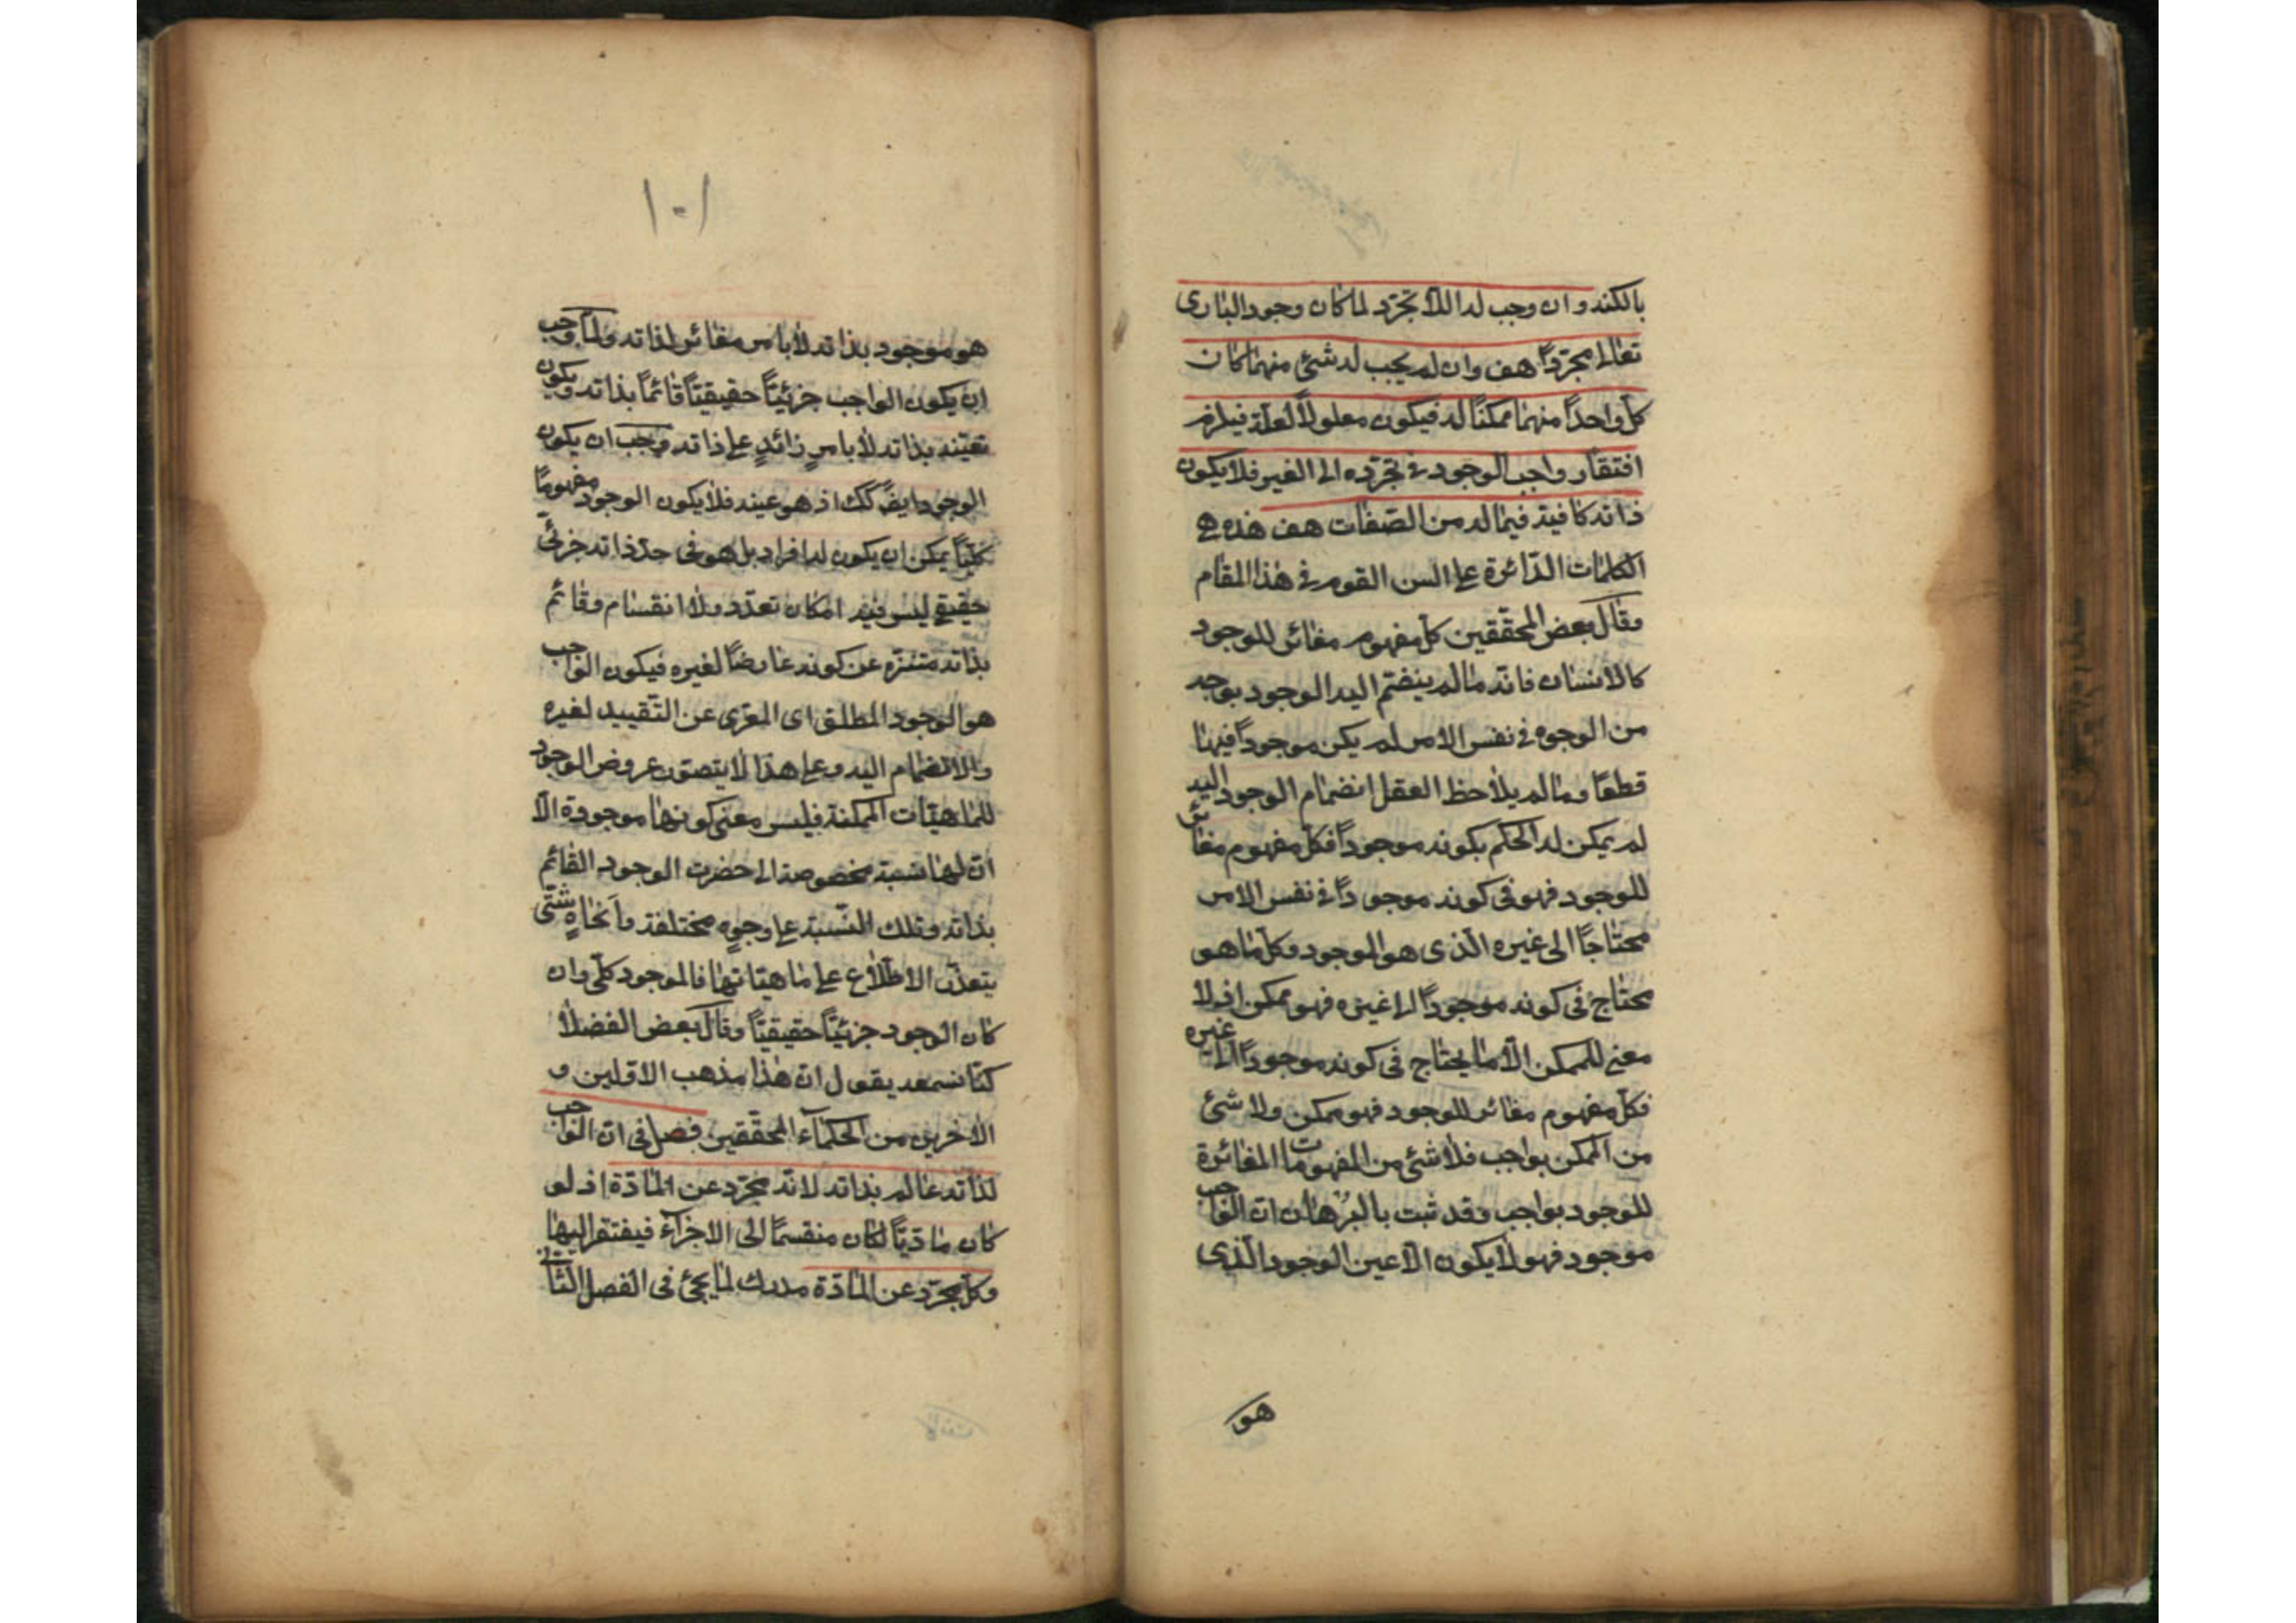 بالكنه وان وجب له اللا تجرّد لما كان وجود البارى
تعالى مجرّداً هف وان لم يجب له شئ منهما كان
كل واحد منهما ممكناً له فيكون معلولاً لعلة فيلزم
افتقار واجب الوجود فى تجرّده الى الغير فلا يكون
ذاته كافية فيما له من الصّفات هف هذه هى
الكلمات الدّائرة على السن القوم فى هذا المقام
وقال بعض المحقّقين كل مفهوم مغائر للوجود
كالانسان فانّه ما لم ينضمّ اليه الوجود بوجه
من الوجوه فى نفس الامر لم يكن موجوداً فيها
قطعًا وما لم يلاحظ العقل انضمام الوجود اليه
لم يمكن له الحكم بكونه موجوداً فكل مفهوم مغائر
للوجود فهو فى كونه موجوداً فى نفس الامر
محتاجًا الى غيره الّذى هو الوجود وكل ما هو
محتاج فى كونه موجوداً الى غيره فهو ممكن اذ لا
معنى للممكن الّا ما يحتاج فى كونه موجوداً الى غيره
فكل مفهوم مغائر للوجود فهو ممكن ولا شئ
من الممكن بواجب فلا شئ من المفهومات المغائرة
للوجود بواجب وقد ثبت بالبرهان ان الواجب
موجود فهو لا يكون الّا عين الوجود الّذى
هو
١٠١
هو موجود بذاته لا بامر مغائر لذاته ولمّا وجب
ان يكون الواجب جزئيّاً حقيقيّاً قائمًا بذاته ويكون
تعيّنه بذاته لا بامرٍ زائدٍ على ذاته وجب ان يكون
الوجود ايض كك اذ هو عينه فلا يكون الوجود مفهومًا
كليّاً يمكن ان يكون له افراد بل هو فى حدّ ذاته جزئىّ
حقيقى ليس فيه امكان تعدّد ولا انقسام وقائم
بذاته متنزّه عن كونه عارضاً لغيره فيكون الواجب
هو الوجود المطلق اى المعرّى عن التّقييد لغيره
والانضمام اليه وعلى هذا لا يتصوّر عروض الوجود
للماهيّات الممكنة فليس معنى كونها موجودة الّا
انّ لها نسبة مخصوصة الى حضرت الوجود القائم
بذاته وتلك النّسبة على وجوهٍ مختلفة وأنحاءٍ شتّى
يتعذّر الاطّلاع على ماهيّاتها فالموجود كلّى وان
كان الوجود جزئيّاً حقيقيّاً وقال بعض الفضلا
كنّا نسمعه يقول ان هذا مذهب الاوّلين و
الاخرين من الحكماء المحقّقين فصل فى انّ الواجب
لذاته عالم بذاته لانّه مجرّد عن المادّة اذ لو
كان ماديّاً لكان منقسمًا الى الاجزآء فيفتقر اليها
وكل مجرّد عن المادّة مدرك لما يجئ فى الفصل الثانى